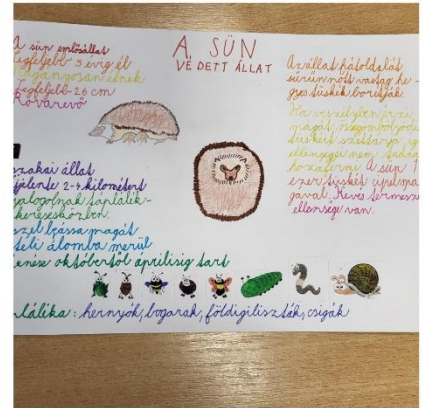 A SÜN
VÉDETT ÁLLAT
A sün emlősállat
legfeljebb 9 évig él
Magányosan élnek
Legfeljebb 26 cm
Rovarevő
Az állat hátoldalát
sűrűn nőtt vastag he-
gyes tüskék borítják.
Ha veszélyben érzi
magát, összegömbölyödik
tüskéit széttárja, így
ellenségei nem tudnak
hozzáférni. A sün
ezer tüskét cipel ma-
gával. Kevés természe
ellensége van.
szakai állat
jjelente 2-4 kilométert
yalogolnak táplálék-
keresés közben.
téli álomba merül
októbertől áprilisig tart
láléka: hernyók, bogarak, földigiliszták, csigák